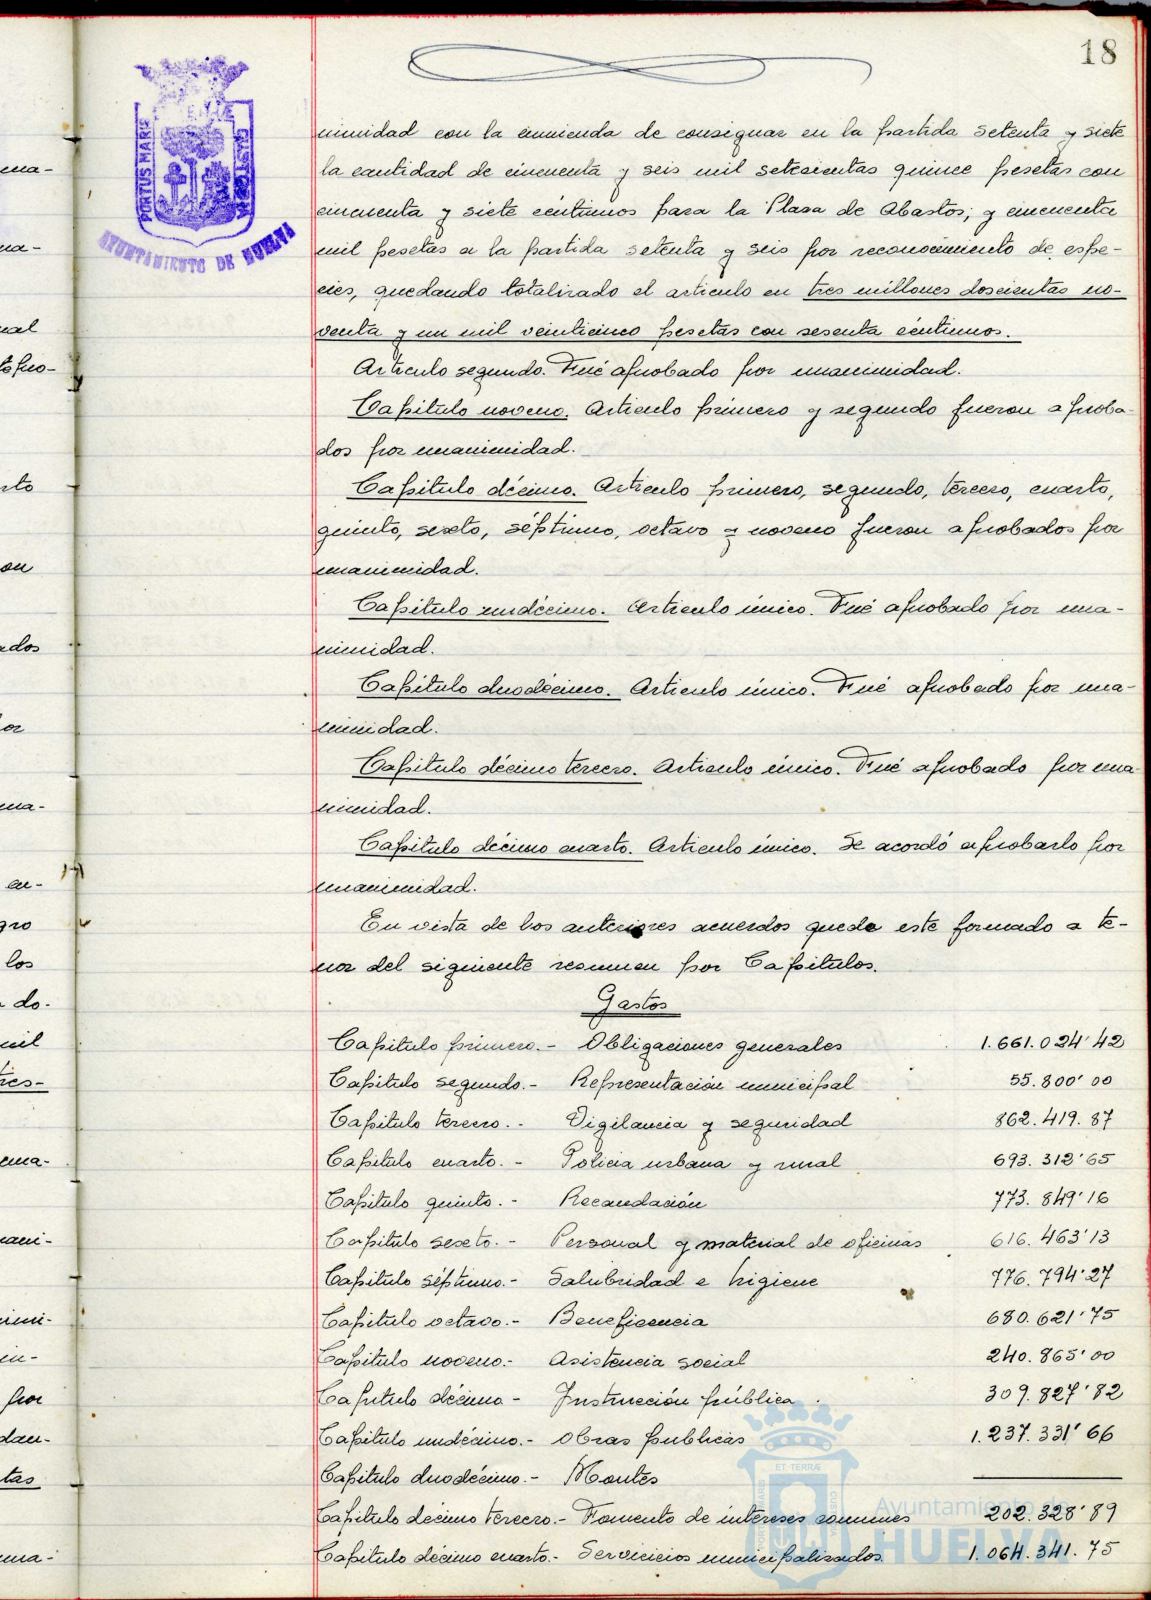 18
PORTUS MARIS
AYUNTAMIENTO DE HUELVA
nimidad con la enmienda de consignar en la partida setenta y siete
la cantidad de cincuenta y seis mil setecientas quince pesetas con
cincuenta y siete céntimos para la Plaza de Abastos; y cincuenta
mil pesetas a la partida setenta y seis por reconocimiento de espe-
cies, quedando totalizado el articulo en tres millones doscientas no-
venta y un mil veinticinco pesetas con sesenta céntimos.
Articulo segundo. Fué aprobado por unanimidad.
Capitulo noveno. Articulo primero y segundo fueron aproba-
dos por unanimidad.
Capitulo décimo. Articulo primero, segundo, tercero, cuarto,
quinto, sexto, séptimo, octavo y noveno fueron aprobados por
unanimidad.
Capitulo undécimo. Articulo único. Fué aprobado por una-
nimidad.
Capitulo duodécimo. Articulo único. Fué aprobado por una-
nimidad.
Capitulo décimo tercero. Articulo único. Fué aprobado por una-
nimidad.
Capitulo décimo cuarto. Articulo único. Se acordó aprobarlo por
unanimidad.
En vista de los anteriores acuerdos queda este formado a te-
nor del siguiente resumen por Capitulos.
Gastos
Capitulo primero.- Obligaciones generales 1.661.024'42
Capitulo segundo.- Representación municipal 55.800'00
Capitulo tercero.- Vigilancia y seguridad 862.419.87
Capitulo cuarto.- Policia urbana y rural 693.312'65
Capitulo quinto.- Recaudación 773.849'16
Capitulo sexto.- Personal y material de oficinas 616.463'13
Capitulo séptimo.- Salubridad e higiene 776.794'27
Capitulo octavo.- Beneficencia 680.621'75
Capitulo noveno.- Asistencia social 240.865'00
Capitulo décimo - Instrucción pública 309.827'82
Capitulo undécimo.- Obras publicas 1.237.331'66
Capitulo duodécimo.- Montes
Capitulo décimo tercero.- Fomento de intereses comunes 202.328'89
Capitulo décimo cuarto.- Servicicios municipalizados 1.064.341.75
Ayuntamiento de
HUELVA